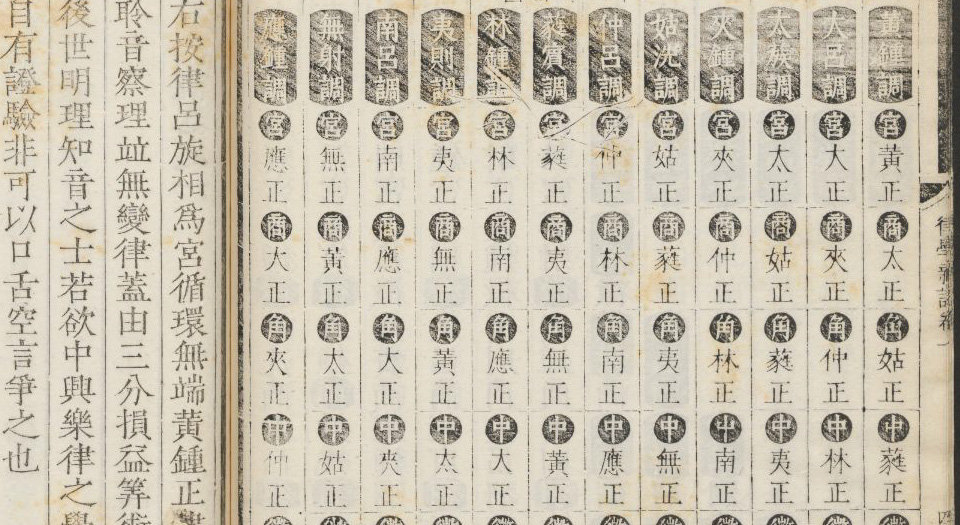 律學新說卷
黃鍾調宮黃正商太正角姑正中蕤正
大呂調宮大正商夾正角仲正中林正
太蔟調宮太正商姑正角蕤正中夷正
夾鍾調宮夾正商仲正角林正中南正
姑洗調宮姑正商蕤正角夷正中無正
仲呂調宮仲正商林正角南正中應正
蕤賓調宮蕤正商夷正角無正中黃正
林鍾調宮林正商南正角應正中大正
夷則調宮夷正商無正角黃正中太正
南呂調宮南正商應正角大正中夾正
無射調宮無正商黃正角太正中姑正
應鍾調宮應正商大正角夾正中仲正
右按律呂旋相爲宮循環無端黃鍾正
聆音察理竝無變律蓋由三分損益筭
後世明理知音之士若欲中興樂律之
自有證驗非可以口舌空言爭之也